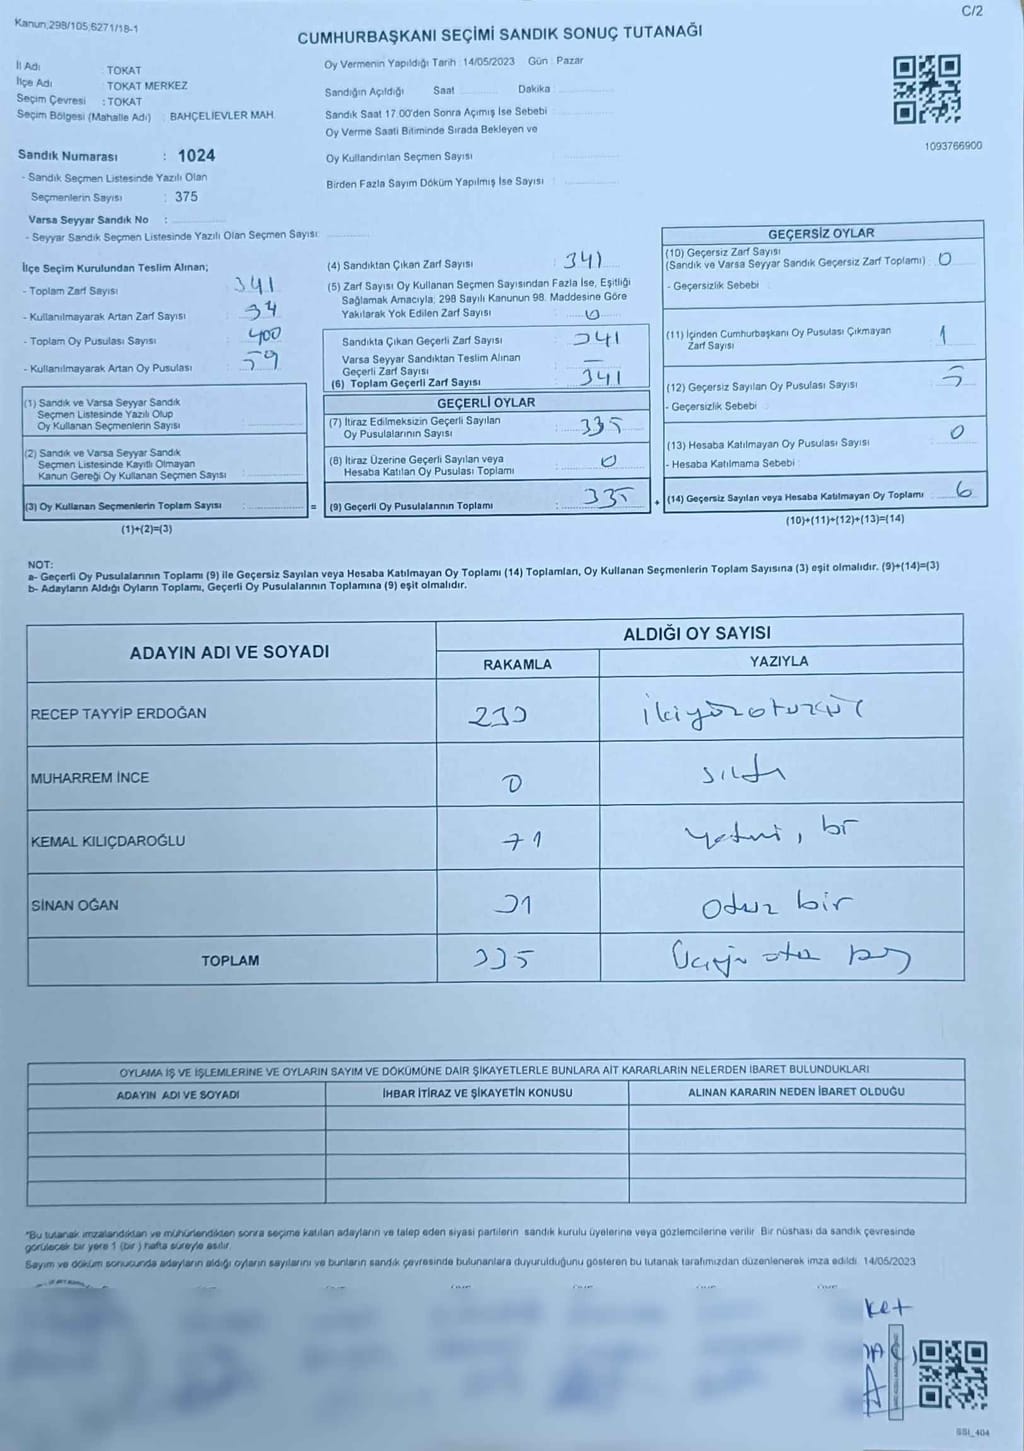 Kanun;298/105;6271/18-1
C/2
CUMHURBAŞKANI SEÇİMİ SANDIK SONUÇ TUTANAĞI
İl Adı : TOKAT
İlçe Adı : TOKAT MERKEZ
Seçim Çevresi : TOKAT
Seçim Bölgesi (Mahalle Adı) : BAHÇELİEVLER MAH.
Oy Vermenin Yapıldığı Tarih : 14/05/2023 Gün : Pazar
Sandığın Açıldığı Saat Dakika
Sandık Saat 17.00'den Sonra Açımış İse Sebebi
Oy Verme Saati Bitiminde Sırada Bekleyen ve
Oy Kullandırılan Seçmen Sayısı
Birden Fazla Sayım Döküm Yapılmış İse Sayısı
1093766900
Sandık Numarası : 1024
- Sandık Seçmen Listesinde Yazılı Olan
Seçmenlerin Sayısı : 375
Varsa Seyyar Sandık No :
- Seyyar Sandık Seçmen Listesinde Yazılı Olan Seçmen Sayısı:
İlçe Seçim Kurulundan Teslim Alınan;
- Toplam Zarf Sayısı : 341
- Kullanılmayarak Artan Zarf Sayısı : 34
- Toplam Oy Pusulası Sayısı : 400
- Kullanılmayarak Artan Oy Pusulası : 59
(1) Sandık ve Varsa Seyyar Sandık
Seçmen Listesinde Yazılı Olup
Oy Kullanan Seçmenlerin Sayısı :
(2) Sandık ve Varsa Seyyar Sandık
Seçmen Listesinde Kayıtlı Olmayan
Kanun Gereği Oy Kullanan Seçmen Sayısı :
(3) Oy Kullanan Seçmenlerin Toplam Sayısı : =
(1)+(2)=(3)
(4) Sandıktan Çıkan Zarf Sayısı : 341
(5) Zarf Sayısı Oy Kullanan Seçmen Sayısından Fazla İse, Eşitliği
Sağlamak Amacıyla; 298 Sayılı Kanunun 98. Maddesine Göre
Yakılarak Yok Edilen Zarf Sayısı : 0
Sandıkta Çıkan Geçerli Zarf Sayısı : 341
Varsa Seyyar Sandıktan Teslim Alınan
Geçerli Zarf Sayısı : —
(6) Toplam Geçerli Zarf Sayısı : 341
GEÇERLİ OYLAR
(7) İtiraz Edilmeksizin Geçerli Sayılan
Oy Pusulalarının Sayısı : 335
(8) İtiraz Üzerine Geçerli Sayılan veya
Hesaba Katılan Oy Pusulası Toplamı : 0
(9) Geçerli Oy Pusulalarının Toplamı : 335 +
GEÇERSİZ OYLAR
(10) Geçersiz Zarf Sayısı
(Sandık ve Varsa Seyyar Sandık Geçersiz Zarf Toplamı) : 0
- Geçersizlik Sebebi :
(11) İçinden Cumhurbaşkanı Oy Pusulası Çıkmayan
Zarf Sayısı : 1
(12) Geçersiz Sayılan Oy Pusulası Sayısı : 5
- Geçersizlik Sebebi :
(13) Hesaba Katılmayan Oy Pusulası Sayısı : 0
- Hesaba Katılmama Sebebi :
(14) Geçersiz Sayılan veya Hesaba Katılmayan Oy Toplamı : 6
(10)+(11)+(12)+(13)=(14)
NOT:
a- Geçerli Oy Pusulalarının Toplamı (9) ile Geçersiz Sayılan veya Hesaba Katılmayan Oy Toplamı (14) Toplamları, Oy Kullanan Seçmenlerin Toplam Sayısına (3) eşit olmalıdır. (9)+(14)=(3)
b- Adayların Aldığı Oyların Toplamı, Geçerli Oy Pusulalarının Toplamına (9) eşit olmalıdır.
ADAYIN ADI VE SOYADI
ALDIĞI OY SAYISI
RAKAMLA YAZIYLA
RECEP TAYYİP ERDOĞAN 233 ikiyüzotuzüç
MUHARREM İNCE 0 sıfır
KEMAL KILIÇDAROĞLU 71 yetmiş, bir
SİNAN OĞAN 31 otuz bir
TOPLAM 335 Üçyüz otuz beş
OYLAMA İŞ VE İŞLEMLERİNE VE OYLARIN SAYIM VE DÖKÜMÜNE DAİR ŞİKAYETLERLE BUNLARA AİT KARARLARIN NELERDEN İBARET BULUNDUKLARI
ADAYIN ADI VE SOYADI İHBAR İTİRAZ VE ŞİKAYETİN KONUSU ALINAN KARARIN NEDEN İBARET OLDUĞU
*Bu tutanak imzalandıktan ve mühürlendikten sonra seçime katılan adayların ve talep eden siyasi partilerin sandık kurulu üyelerine veya gözlemcilerine verilir. Bir nüshası da sandık çevresinde
görülecek bir yere 1 (bir ) hafta süreyle asılır.
Sayım ve döküm sonucunda adayların aldığı oyların sayılarını ve bunların sandık çevresinde bulunanlara duyurulduğunu gösteren bu tutanak tarafımızdan düzenlenerek imza edildi. 14/05/2023
ket
SSI_404